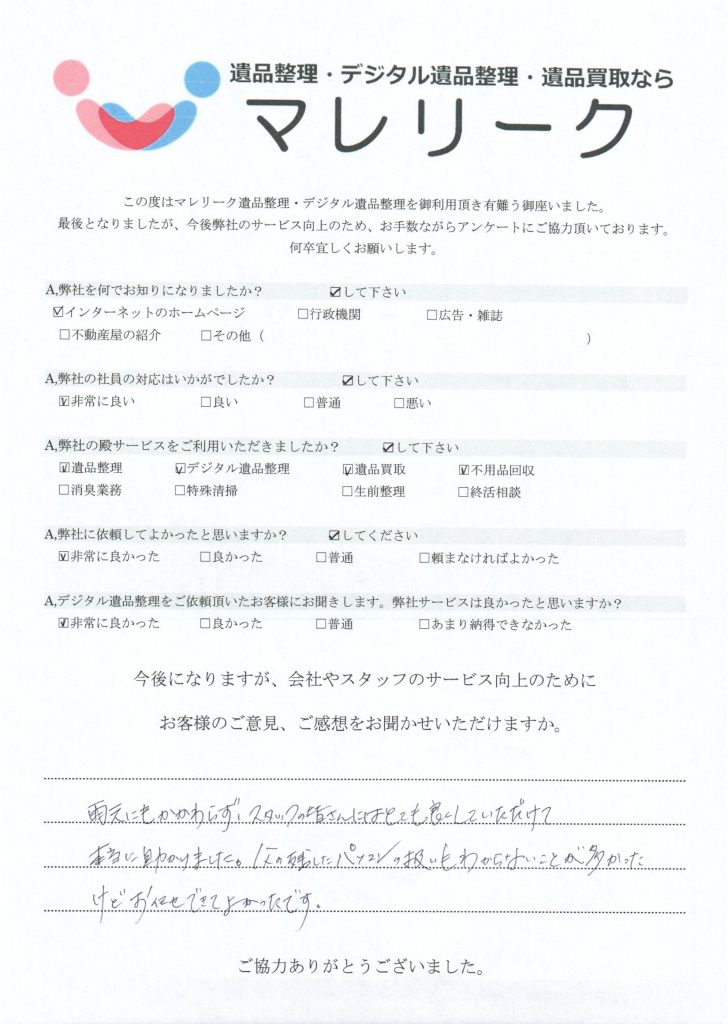 遺品整理・デジタル遺品整理・遺品買取なら
マレリーク
この度はマレリーク遺品整理・デジタル遺品整理を御利用頂き有難う御座いました。
最後となりましたが、今後弊社のサービス向上のため、お手数ながらアンケートにご協力頂いております。
何卒宜しくお願いします。
A,弊社を何でお知りになりましたか? ☑して下さい
☑インターネットのホームページ □行政機関 □広告・雑誌
□不動産屋の紹介 □その他( )
A,弊社の社員の対応はいかがでしたか? ☑して下さい
☑非常に良い □良い □普通 □悪い
A,弊社の殿サービスをご利用いただきましたか? ☑して下さい
☑遺品整理 ☑デジタル遺品整理 ☑遺品買取 ☑不用品回収
□消臭業務 □特殊清掃 □生前整理 □終活相談
A,弊社に依頼してよかったと思いますか? ☑してください
☑非常に良かった □良かった □普通 □頼まなければよかった
A,デジタル遺品整理をご依頼頂いたお客様にお聞きします。弊社サービスは良かったと思いますか?
☑非常に良かった □良かった □普通 □あまり納得できなかった
今後になりますが、会社やスタッフのサービス向上のために
お客様のご意見、ご感想をお聞かせいただけますか。
雨天にもかかわらず、スタッフの皆さんにはとても良くしていただけて
本当に助かりました。父の残したパソコンの扱いもわからないことが多かった
けどお任せできてよかったです。
ご協力ありがとうございました。